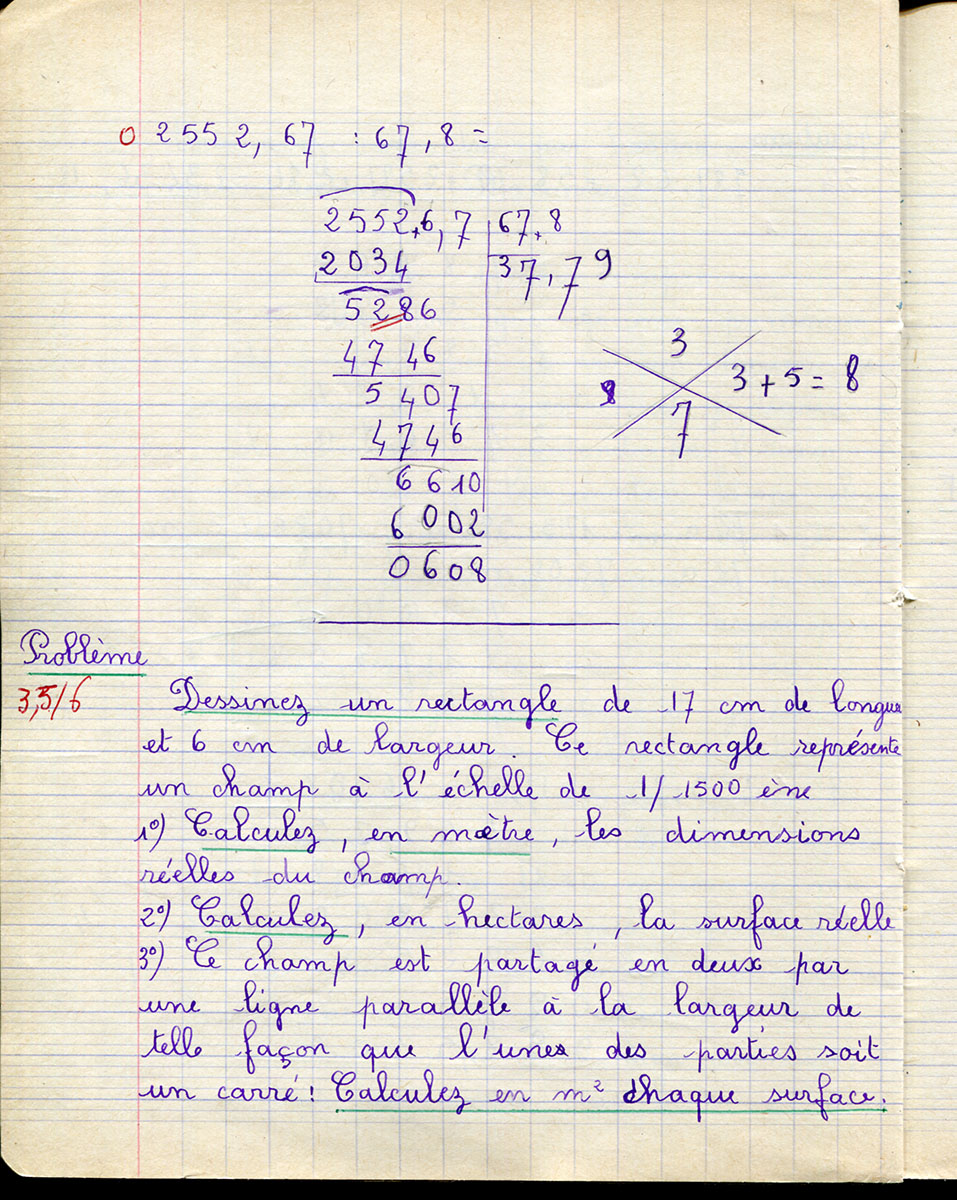 0 2552,67 : 67,8 =
2552,6,7 67,8
2034 37,79
5286
4746
5407
4746
6610
6002
0608
3
8 3+5=8
7
Problème
3,5/6 Dessinez un rectangle de 17 cm de longue
et 6 cm de largeur. Ce rectangle représente
un champ à l'échelle de 1/1500 ème
1º) Calculez, en mètre, les dimensions
réelles du champ.
2º) Calculez, en hectares, la surface réelle
3º) Ce champ est partagé en deux par
une ligne parallèle à la largeur de
telle façon que l'une des parties soit
un carré! Calculez en m² chaque surface.